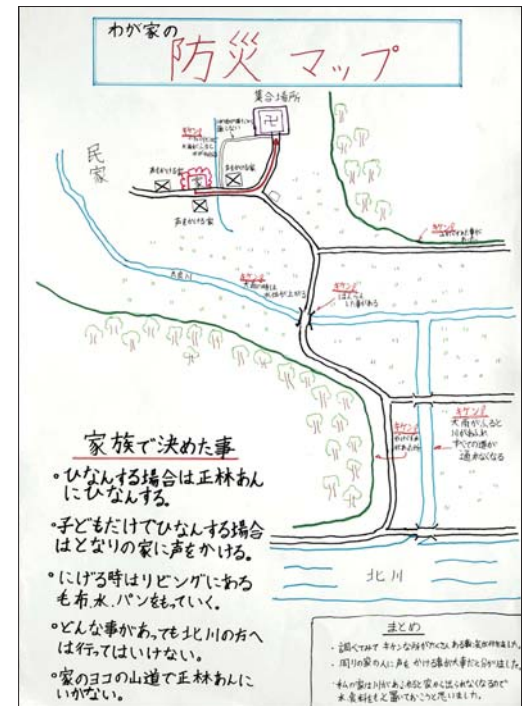 わが家の
防災 マップ
集合場所
卍
民家
キケン!
声をかける家
声をかける家
家
声をかける家
キケン!
キケン!
大雨の時は
水位が上がる
キケン!
はんらん
した事がある
キケン!
大雨がふると
川があふれ
すべての道が
通れなくなる
キケン!
北川
家族で決めた事
・ひなんする場合は正林あん
にひなんする。
・子どもだけでひなんする場合
はとなりの家に声をかける。
・にげる時はリビングにある
毛布、水、パンをもっていく。
・どんな事があっても北川の方へ
は行ってはいけない。
・家のヨコの山道で正林あんに
いかない。
まとめ
・調べてみてキケンな所がたくさんある事に気が付きました。
・周りの家の人に声をかける事が大事だと分かりました。
・私の家は川があふれると家から出られなくなるので
水、食料をもっと置いておこうと思いました。